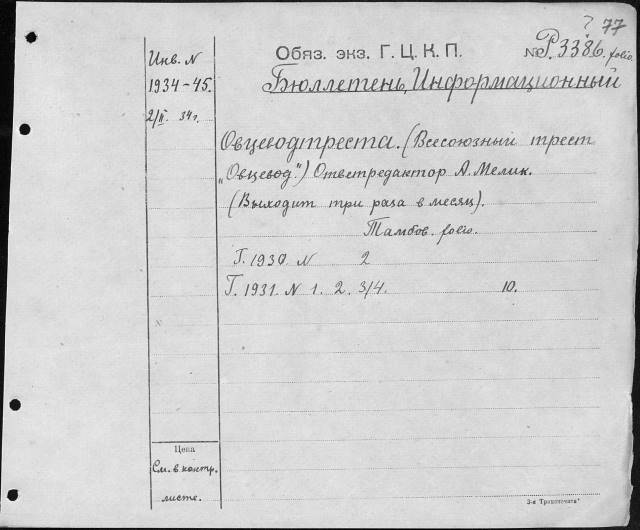 ? 77
Инв. N
Обяз. экз. Г. Ц. К. П.
№ Р. 3386. folio.
1934-45.
Бюллетень, Информационный
2/II 34г.
Овцеводтреста. (Всесоюзный трест
„Овцевод".) Ответредактор А. Мелик.
(Выходит три раза в месяц).
Тамбов. folio.
Г. 1930. N 2
Г. 1931. N 1. 2. 3/4. 10.
Цена
См. в контр.
листе.
3-я „Транспечати"